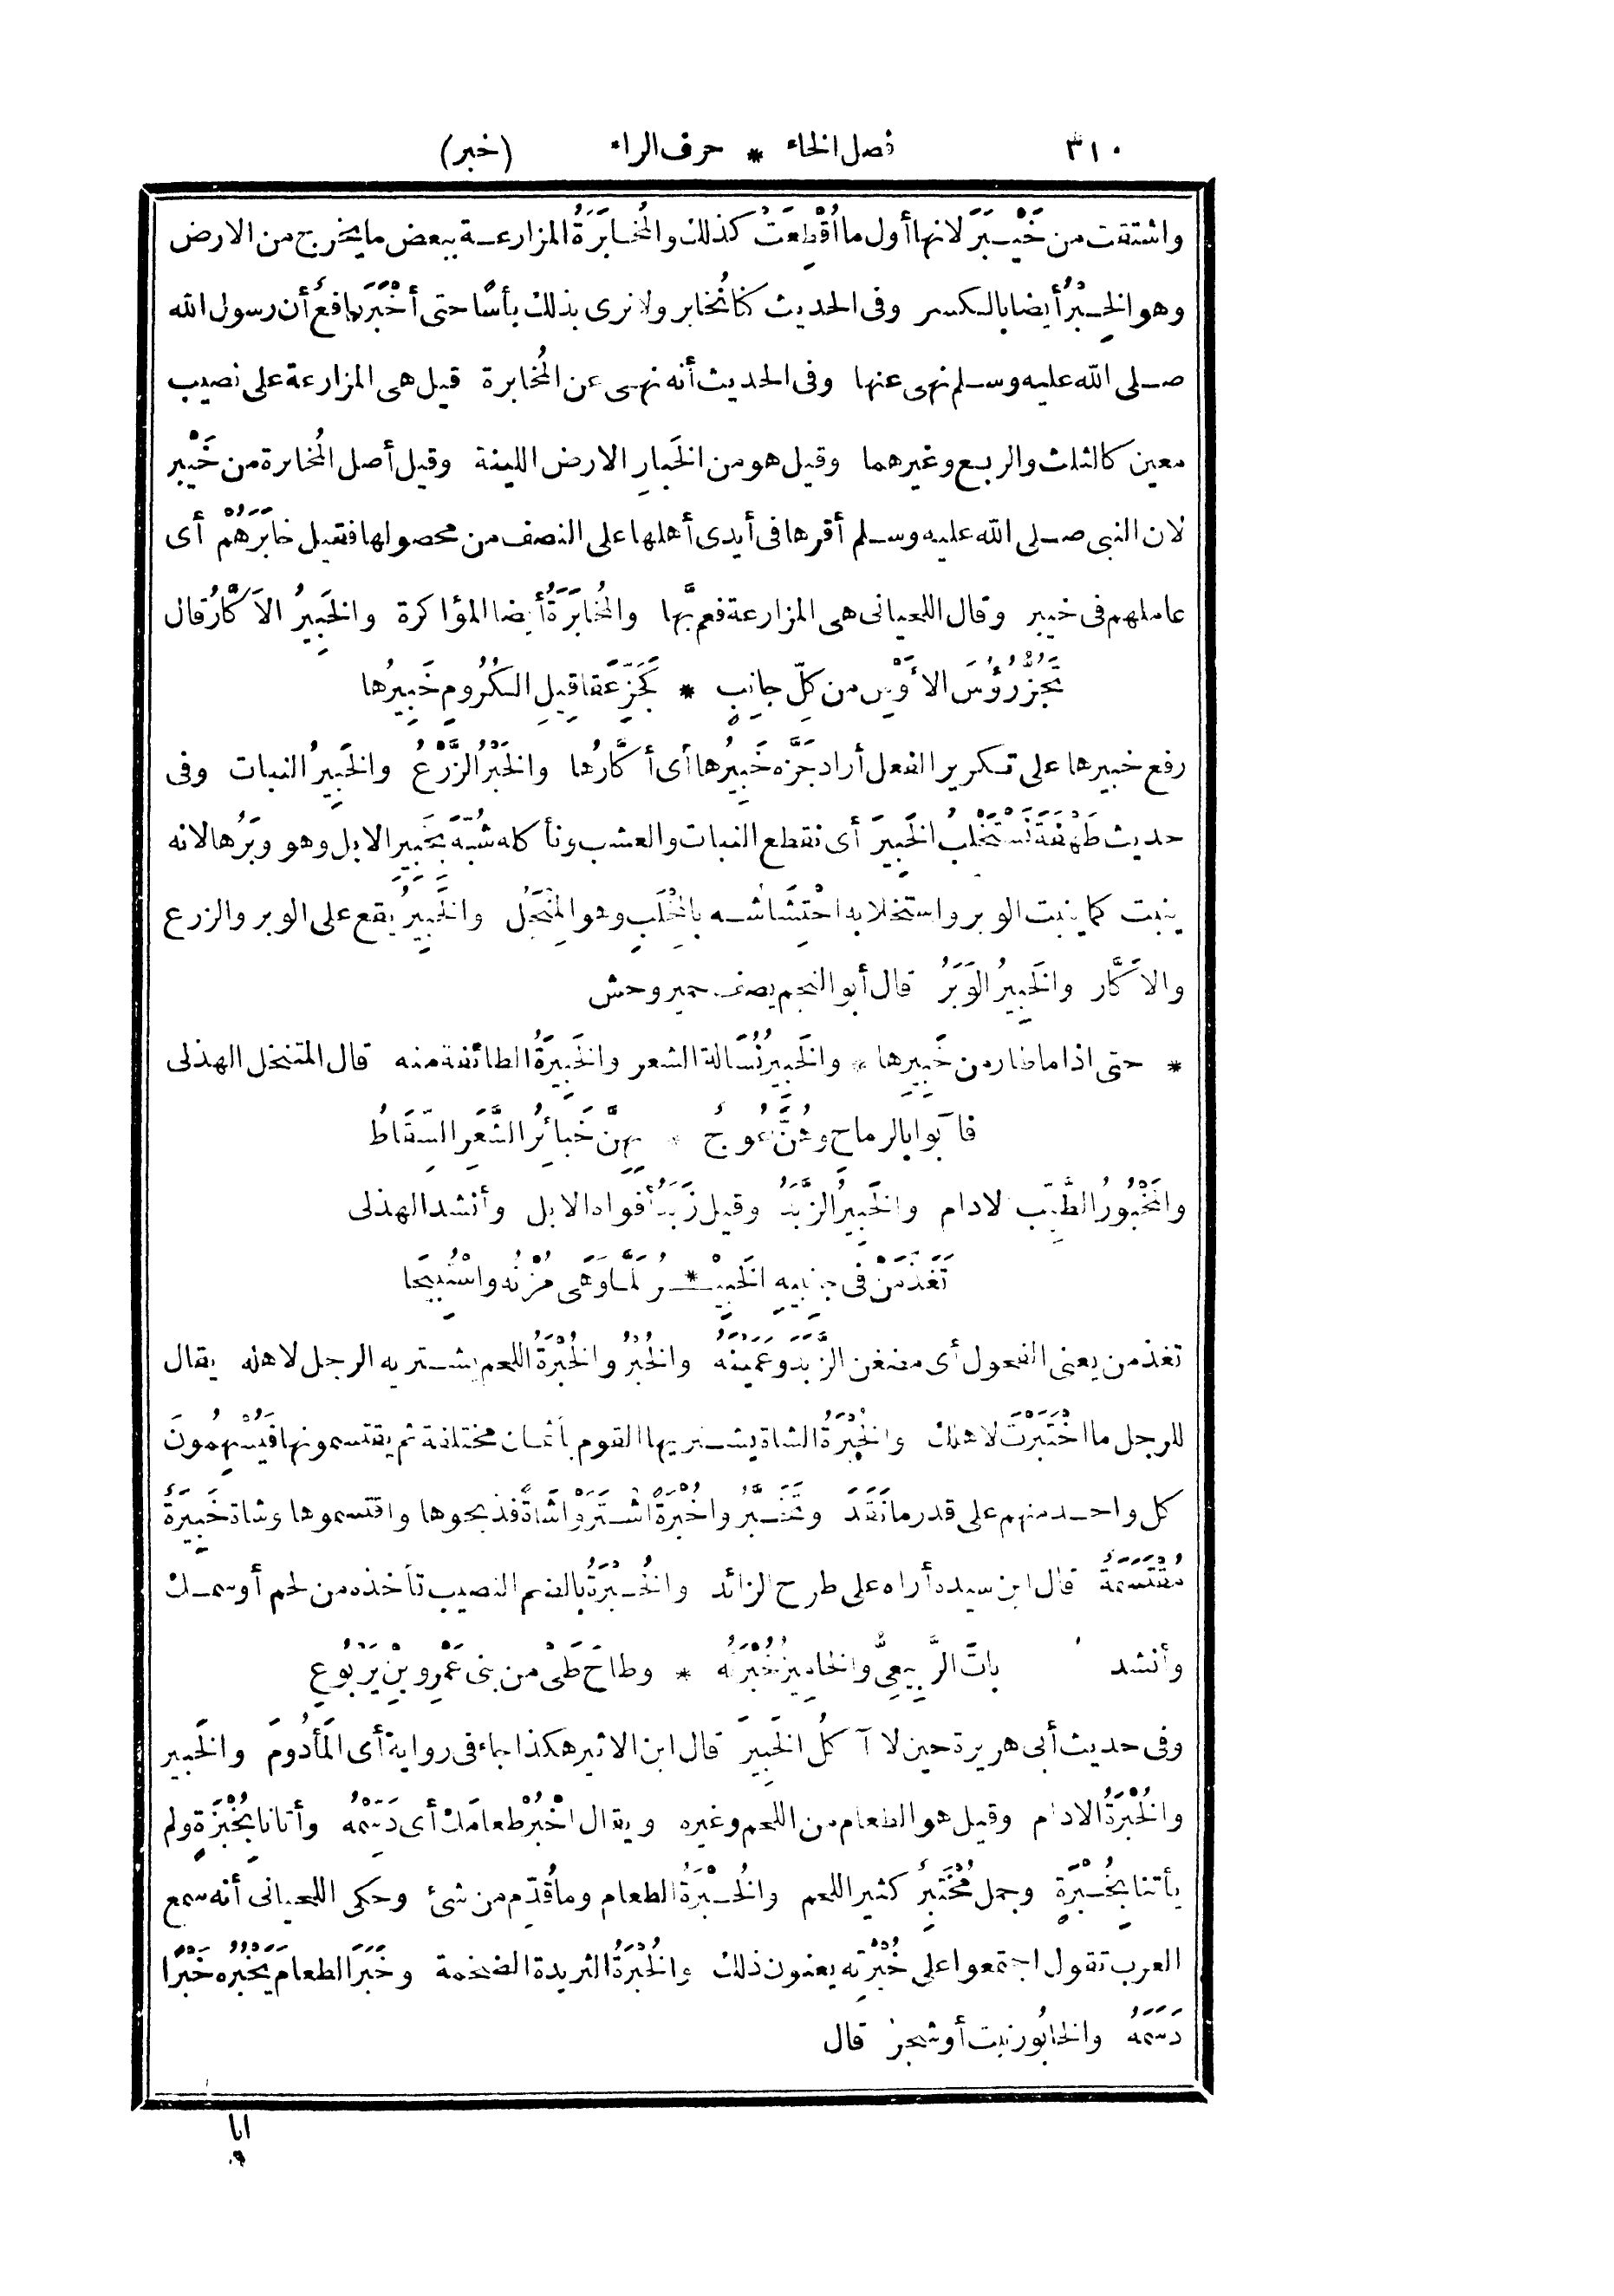 ٣١٠ فصل الخاء * حرف الراء (خبر)
واشتقت من خَيْبَرَ لانها أول ما أُقْطِعَتْ كذلك والمُخابَرَةُ المزارعة ببعض ما يخرج من الارض
وهو الخِبْرُ أيضا بالكسر وفى الحديث كنا نُخابر ولا نرى بذلك بأسًا حتى أَخْبَرَ رافعٌ أن رسول الله
صلى الله عليه وسلم نهى عنها وفى الحديث أنه نهى عن المُخابرة قيل هى المزارعة على نصيب
معين كالثلث والربع وغيرهما وقيل هو من الخَبارِ الارض اللينة وقيل أصل المُخابرة من خَيْبر
لان النبى صلى الله عليه وسلم أقرها فى أيدى أهلها على النصف من محصولها فقيل خابَرَهُمْ أى
عاملهم فى خيبر وقال اللحيانى هى المزارعة فعمّ بها والمُخابَرَةُ أيضا المؤاكرة والخَبِيرُ الاَكَّارُ قال
تَجُزُّ رُؤُسَ الأَوْسِ من كلّ جانِبٍ * كَجَزِّ عَقاقِيلِ الكُرُومِ خَبِيرُها
رفع خبيرها على تكرير الفعل أراد جَزَّه خَبِيرُها أى أَكَّارُها والخَبْرُ الزَّرْعُ والخَبِيرُ النبات وفى
حديث طَهْفَةَ نَسْتَخْلِبُ الخَبِيرَ أى نقطع النبات والعشب ونأكله شُبّهَ بِخَبِيرِ الابل وهو وبَرُها لانه
ينبت كما ينبت الوبر واستخلابه احْتِشَاشُه بالمِخْلَبِ وهو المِنْجَلُ والخَبِيرُ يقع على الوبر والزرع
والاَكَّار والخَبِيرُ الوَبَرُ قال أبو النجم يصف حمير وحش
* حتى اذا ما طار من خَبِيرِها * والخَبِيرُ نُسَالة الشعر والخَبِيرَةُ الطائفة منه قال المتنخل الهذلى
فآبوا بالرماح وهُنَّ عُوجٌ * بِهِنَّ خَبائِرُ الشَّعَرِ السِّقَاطُ
والمَخْبُورُ الطَّيِّب الادام والخَبِيرُ الزَّبَدُ وقيل زَبَدُ أفواه الابل وأنشد الهذلى
تَغَذَّمْنَ فى جانبيه الخَبِيـْ * ـرُ لَمَّا وَهَى مُزْنُه واسْتُبِيحَا
تغذمن يعنى الفحول أى مضغن الزَّبَدَ وعَمَيْنَه والخُبْرُ والخُبْرَةُ اللحم يشتريه الرجل لاهله يقال
للرجل ما اخْتَبَرْتَ لاهلك والخُبْرَةُ الشاة يشتريها القوم بأثمان مختلفة ثم يقتسمونها فَيُسْهِمُونَ
كل واحد منهم على قدر ما نَقَدَ وتَخَبَّرُوا خُبْرَةً اشْتَرَوْا شاةً فذبحوها واقتسموها وشاة خَبِيرَةٌ
مُقْتَسَمَةٌ قال ابن سيده أراه على طرح الزائد والخُبْرَةُ بالضم النصيب تأخذه من لحم أو سمك
وأنشد باتَ الرَّبِيعِىُّ والخامِيزُ خُبْرَتُه * وطاحَ طَىُّ من بنى عَمْرِو بْنِ يَرْبُوعِ
وفى حديث أبى هريرة حين لا آكُلُ الخَبِيرَ قال ابن الاثير هكذا جاء فى رواية أى المَأْدُومَ والخَبير
والخُبْرَةُ الادام وقيل هو الطعام من اللحم وغيره ويقال اخْبُرْ طعامك أى دَسِّمْهُ وأتانا بِخُبْزَةٍ ولم
يأتنا بِخُبْرَةٍ وجمل مُخْتَبِرٌ كثير اللحم والخُبْرَةُ الطعام وما قُدّم من شئ وحكى اللحيانى أنه سمع
العرب تقول اجتمعوا على خُبْرَتِه يعنون ذلك والخُبْرَةُ الثريدة الضخمة وخَبَرَ الطعامَ يَخْبُرُه خَبْرًا
دَسَمَهُ والخابُور نبت أو شجر قال